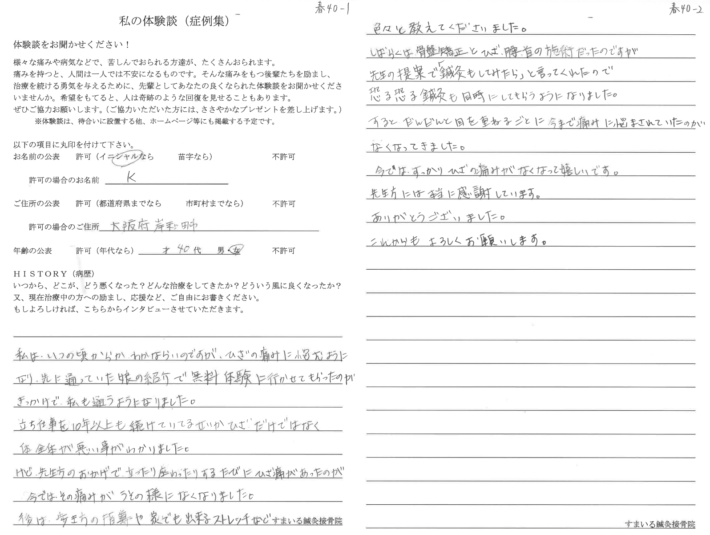 春40-1
私の体験談（症例集）
体験談をお聞かせください！
様々な痛みや病気などで、苦しんでおられる方達が、たくさんおられます。
痛みを持つと、人間は一人では不安になるものです。そんな痛みをもつ後輩たちを励まし、
治療を続ける勇気を与えるために、先輩としてあなたの良くなられた体験談をお聞かせくださ
いませんか。希望をもてると、人は奇跡のような回復を見せることもあります。
ぜひご協力お願いします。（ご協力いただいた方には、ささやかなプレゼントを差し上げます。）
※体験談は、待合いに設置する他、ホームページ等にも掲載する予定です。
以下の項目に丸印を付けて下さい。
お名前の公表　許可（イニシャルなら　苗字なら）　不許可
許可の場合のお名前　K
ご住所の公表　許可（都道府県までなら　市町村までなら）　不許可
許可の場合のご住所　大阪府岸和田市
年齢の公表　許可（年代なら）　才 40代　男・女　不許可
ＨＩＳＴＯＲＹ（病歴）
いつから、どこが、どう悪くなった？どんな治療をしてきたか？どういう風に良くなったか？
又、現在治療中の方への励まし、応援など、ご自由にお書きください。
もしよろしければ、こちらからインタビューさせていただきます。
私は、いつの頃からか わからないのですが、ひざの痛みに悩むように
なり、先に通っていた娘の紹介で無料体験に行かせてもらったのが
きっかけで、私も通うようになりました。
立ち仕事を10年以上も続けているせいかひざだけではなく
体全体が悪い事がわかりました。
先生方のおかげで立ったり座ったりするたびにひざ痛があったのが
今ではその痛みがうその様になくなりました。
後は、先生方の指導や家でも出来るストレッチなど
すまいる鍼灸接骨院
春40-2
色々と教えてくださいました。
しばらくは骨盤矯正とひざ、の施術だったのですが
先生の提案で「鍼灸もしてみたら」と言ってくれたので
恐る恐る鍼灸も同時にしてもらうようになりました。
するとだんだんと回を重ねるごとに今まで痛みに悩まされていたのがい
なくなってきました。
今ではすっかりひざの痛みがなくなって嬉しいです。
先生方には本当に感謝しています。
ありがとうございました。
これからもよろしくお願いします。
すまいる鍼灸接骨院